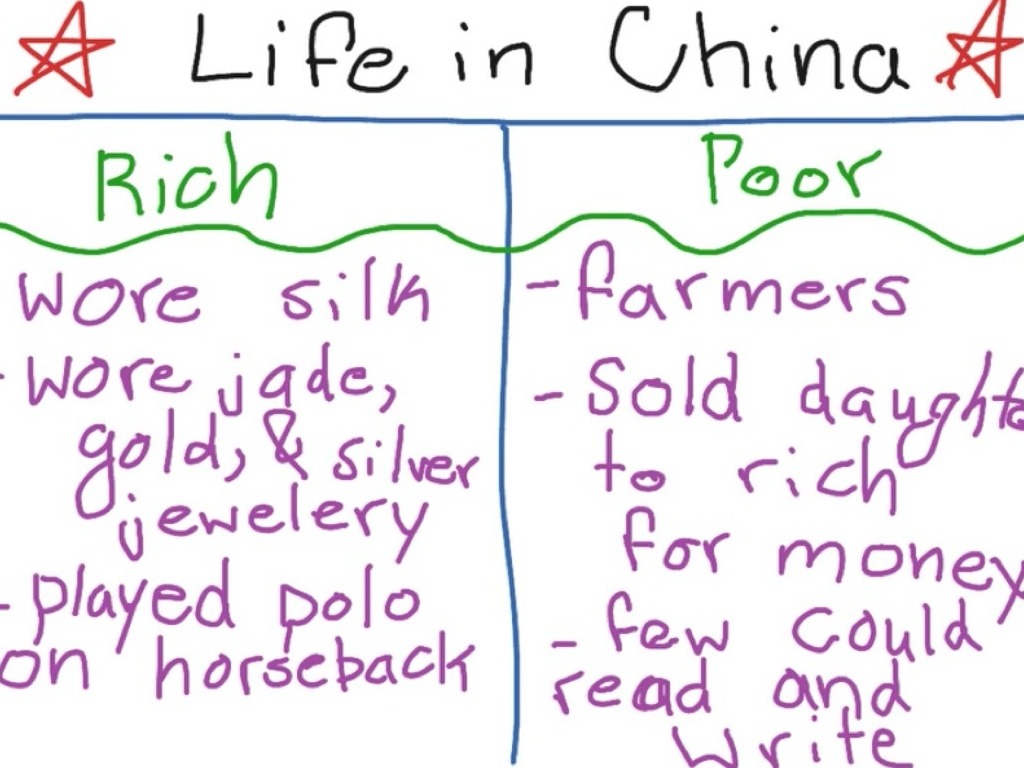 Life in China
Rich
Poor
wore silk
- wore jade,
gold, & silver
jewelery
- played polo
on horseback
- farmers
- Sold daughte
to rich
for money
- few could
read and
write